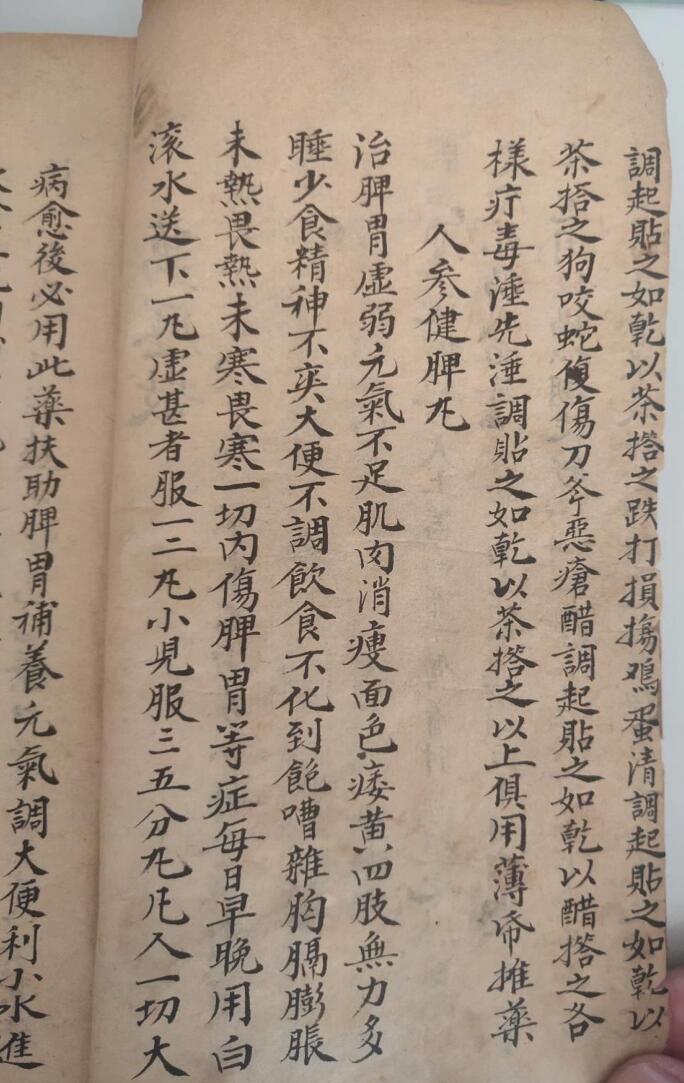 調起貼之如乾以茶搭之跌打損傷鳮蛋清調起貼之如乾以
茶搭之狗咬蛇傷刀斧惡瘡醋調起貼之如乾以醋搭之各
樣疔毒涶先涶調貼之如乾以茶搭之以上俱用薄帋摊藥
人參健脾丸
治脾胃虛弱元氣不足肌肉消瘦面色痿黃四肢無力多
睡少食精神不爽大便不調飲食不化到飽嘈雜胸膈膨脹
未熱畏熱未寒畏寒一切內傷脾胃等症每日早晚用白
滾水送下一丸虛甚者服一二丸小児服三五分丸凡人一切大
病愈後必用此藥扶助脾胃補養元氣調大便利小水進